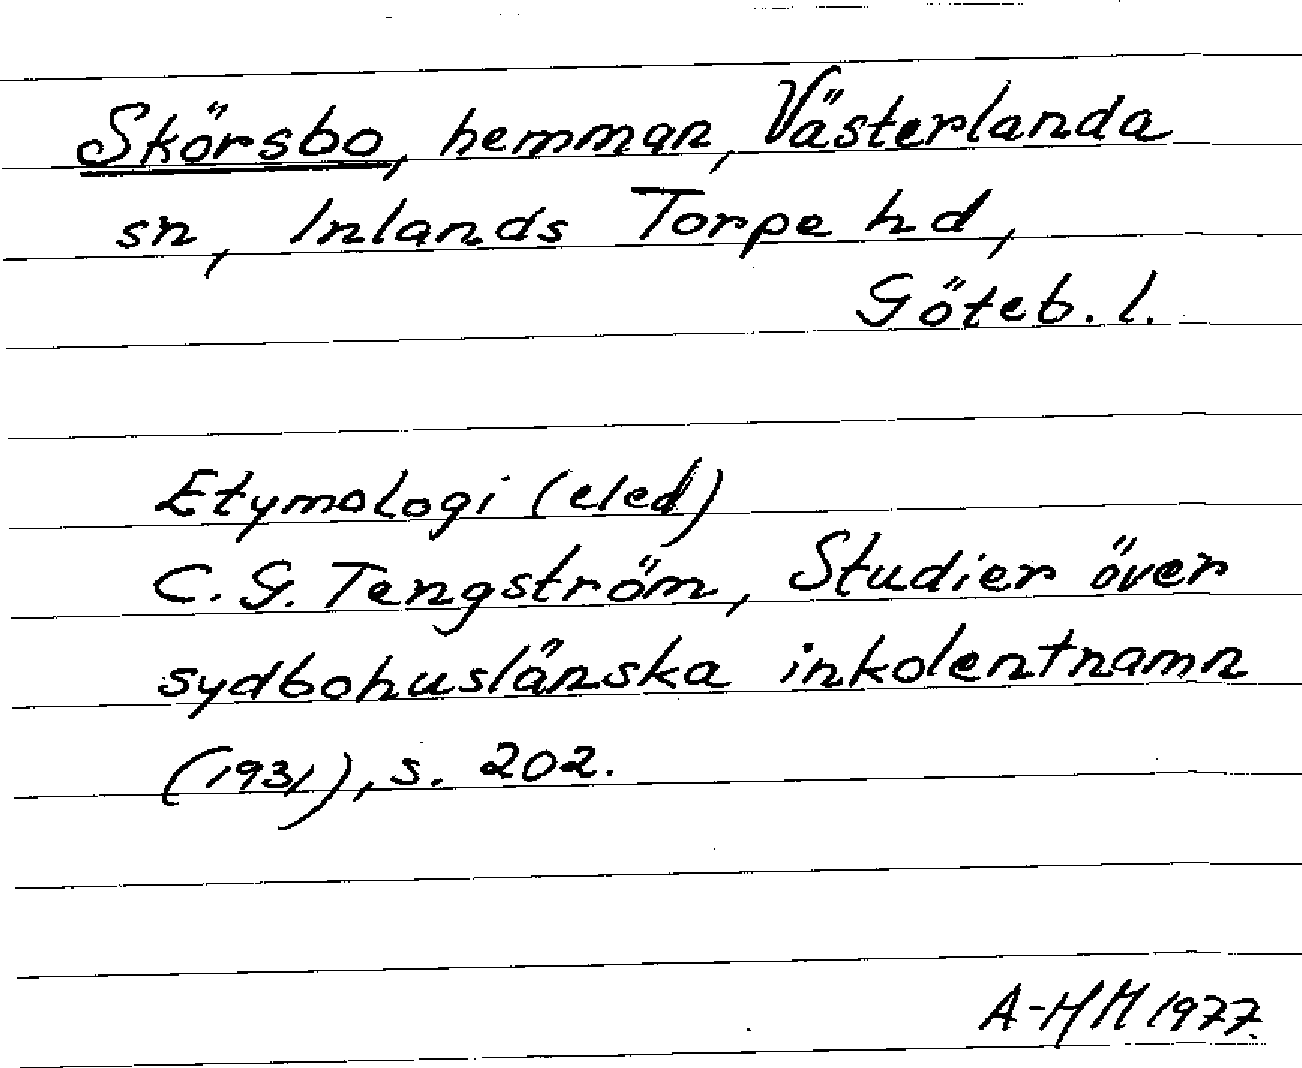 Skörsbo, hemman, Västerlanda
sn, Inlands Torpe hd,
Göteb. l.
Etymologi (eled)
C. G. Tengström, Studier över
sydbohuslänska inkolentnamn
(1931), s. 202.
A-HM 1977.